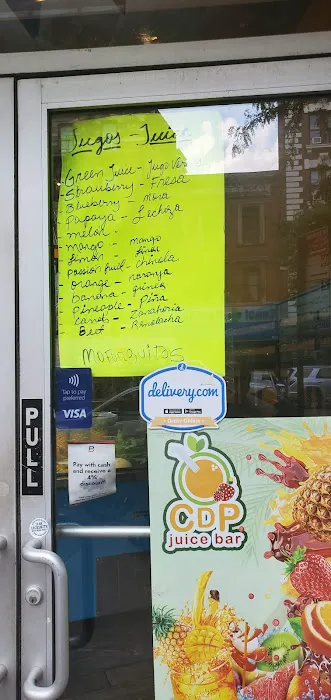 Jugos - Juice
Green Juice - Jugo Ver
Strawberry - Fresa
Blueberry - Mora
Papaya - Lechoza
melon -
mango - mango
limon -
passion fruit - Chinola
orange - naranja
banana - guineo
Pineaple - Piña
Carrots - Zanahoria
Beet - Remolacha
MOFONGUITOS
Tap to pay
preferred
VISA
delivery.com
Order Online
PULL
Pay with cash
and receive a
4%
discount
CDP
juice bar